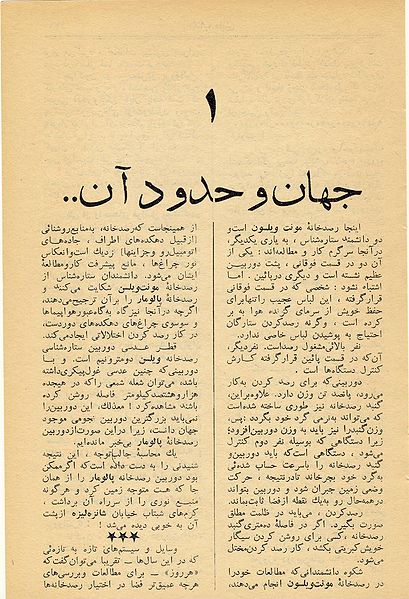 ۱
جهان و حدود آن..
اینجا رصدخانهٔ مونت ویلسون است و
دو دانشمند ستاره‌شناس ، به یاری یکدیگر،
درآنجا سرگرم کار و مطالعه‌اند : یکی از
آن دو در قسمت فوقانی ، پشت دوربین
عظیم نشسته است و دیگری درپائین . اما
اشتباه نشود : شخصی که در قسمت فوقانی
قرارگرفته ، این لباس عجیب راتنهابرای
حفظ خویش از سرمای گزنده هوا به بر
کرده است ، وگرنه رصدکردن ستارگان
احتیاج به پوشیدن لباس خاصی ندارد.
نفر بالائی‌مشغول رصداست. نفردیگر،
آن‌که در قسمت پائین قرارگرفته کارش
کنترل دستگاه‌ها است .
دوربینی‌که برای رصد کردن به‌کار
می‌رود، پانصد تن وزن دارد. علاوه‌براین،
گنبد رصدخانه نیز طوری ساخته شده‌است
که می‌تواند به‌نرمی گرد خود بگردد :پس،
وزن گنبدرا نیز باید به وزن دوربین‌افزود؛
زیرا دستگاهی‌که به‌وسیله نفر دوم کنترل
می‌شود ، دستگاهی است‌که باید دوربین‌و
گنبد رصدخانه را باسرعت حساب شده‌ئی
به‌گرد خود بچرخاند تادرنتیجه ، حرکت
وضعی زمین جبران شود و دوربین بتواند
درهمه‌حال رو به‌یك نقطه ازفضا ثابت‌بماند.
رصدکردن ، می‌باید در ظلمت مطلق
صورت بگیرد. اگر در فاصلهٔ ده‌متری گنبد
رصدخانه ، کسی برای روشن کردن سیگار
خویش‌کبریتی بکشد ، کار رصد کردن‌مختل
می‌شود.
شکوه دانشمندانی که مطالعات خودرا
در رصدخانهٔ مونت‌ویلسون انجام می‌دهند،
از همینجاست که‌رصدخانه، به‌منابع‌روشنائی
(ازقبیل دهکده‌های اطراف ، جاده‌های
اتومبیل‌رو وجزاینها) نزدیك است‌وانعکاس
نور چراغ‌ها ، مانع پیشرفت کارومطالعهٔ
ایشان می‌شود. دانشمندان ستاره‌شناس از
رصدخانهٔ مونت‌ویلسن شکایت می‌کنند و
رصدخانهٔ پالومار را برآن ترجیح‌می‌دهند،
اگرچه درآنجا نیزگاه به‌گاه‌عبورهواپیماها
و سوسوی چراغ‌های دهکده‌های دوردست،
در کار رصد کردن اختلالاتی ایجادمی‌کند.
قطر عدسی دوربین ستاره‌شناسی
رصدخانه ویلسن دومترونیم است . و با
دوربینی‌که چنین عدسی غول‌پیکری‌داشته
باشد، می‌توان شعله شمعی راکه در هیجده
هزاروهشتصدکیلومتر فاصله روشن کرده
باشند مشاهده‌کرد ! معذلك، این دوربین‌را
نمی‌باید بزرگترین دوربین نجومی موجود
جهان دانست، زیرا دراین صورت‌ازدوربین
رصدخانهٔ پالومار بی‌خبر مانده‌ایم.
یك محاسبهٔ جالب‌توجه ، این نتیجه
شنیدنی را به دست داده است‌که اگرممکن
بود دوربین رصدخانه پالومار را از همان
جا که هست متوجه زمین کرد و هرگونه
منبع نوری را از سرراه آن برداشت ،
کرم‌های شبتاب خیابان شانزه‌لیزه ازپشت
آن به خوبی دیده می‌شد !
★★★
وسایل و سیستم‌های تازه به تازه‌ئی
که در این سال‌ها – تقریبا می‌توان‌گفت‌که
«هرروز» – برای مطالعات وبررسی‌های
هرچه عمیق‌تر فضا در اختیار رصدخانه‌ها